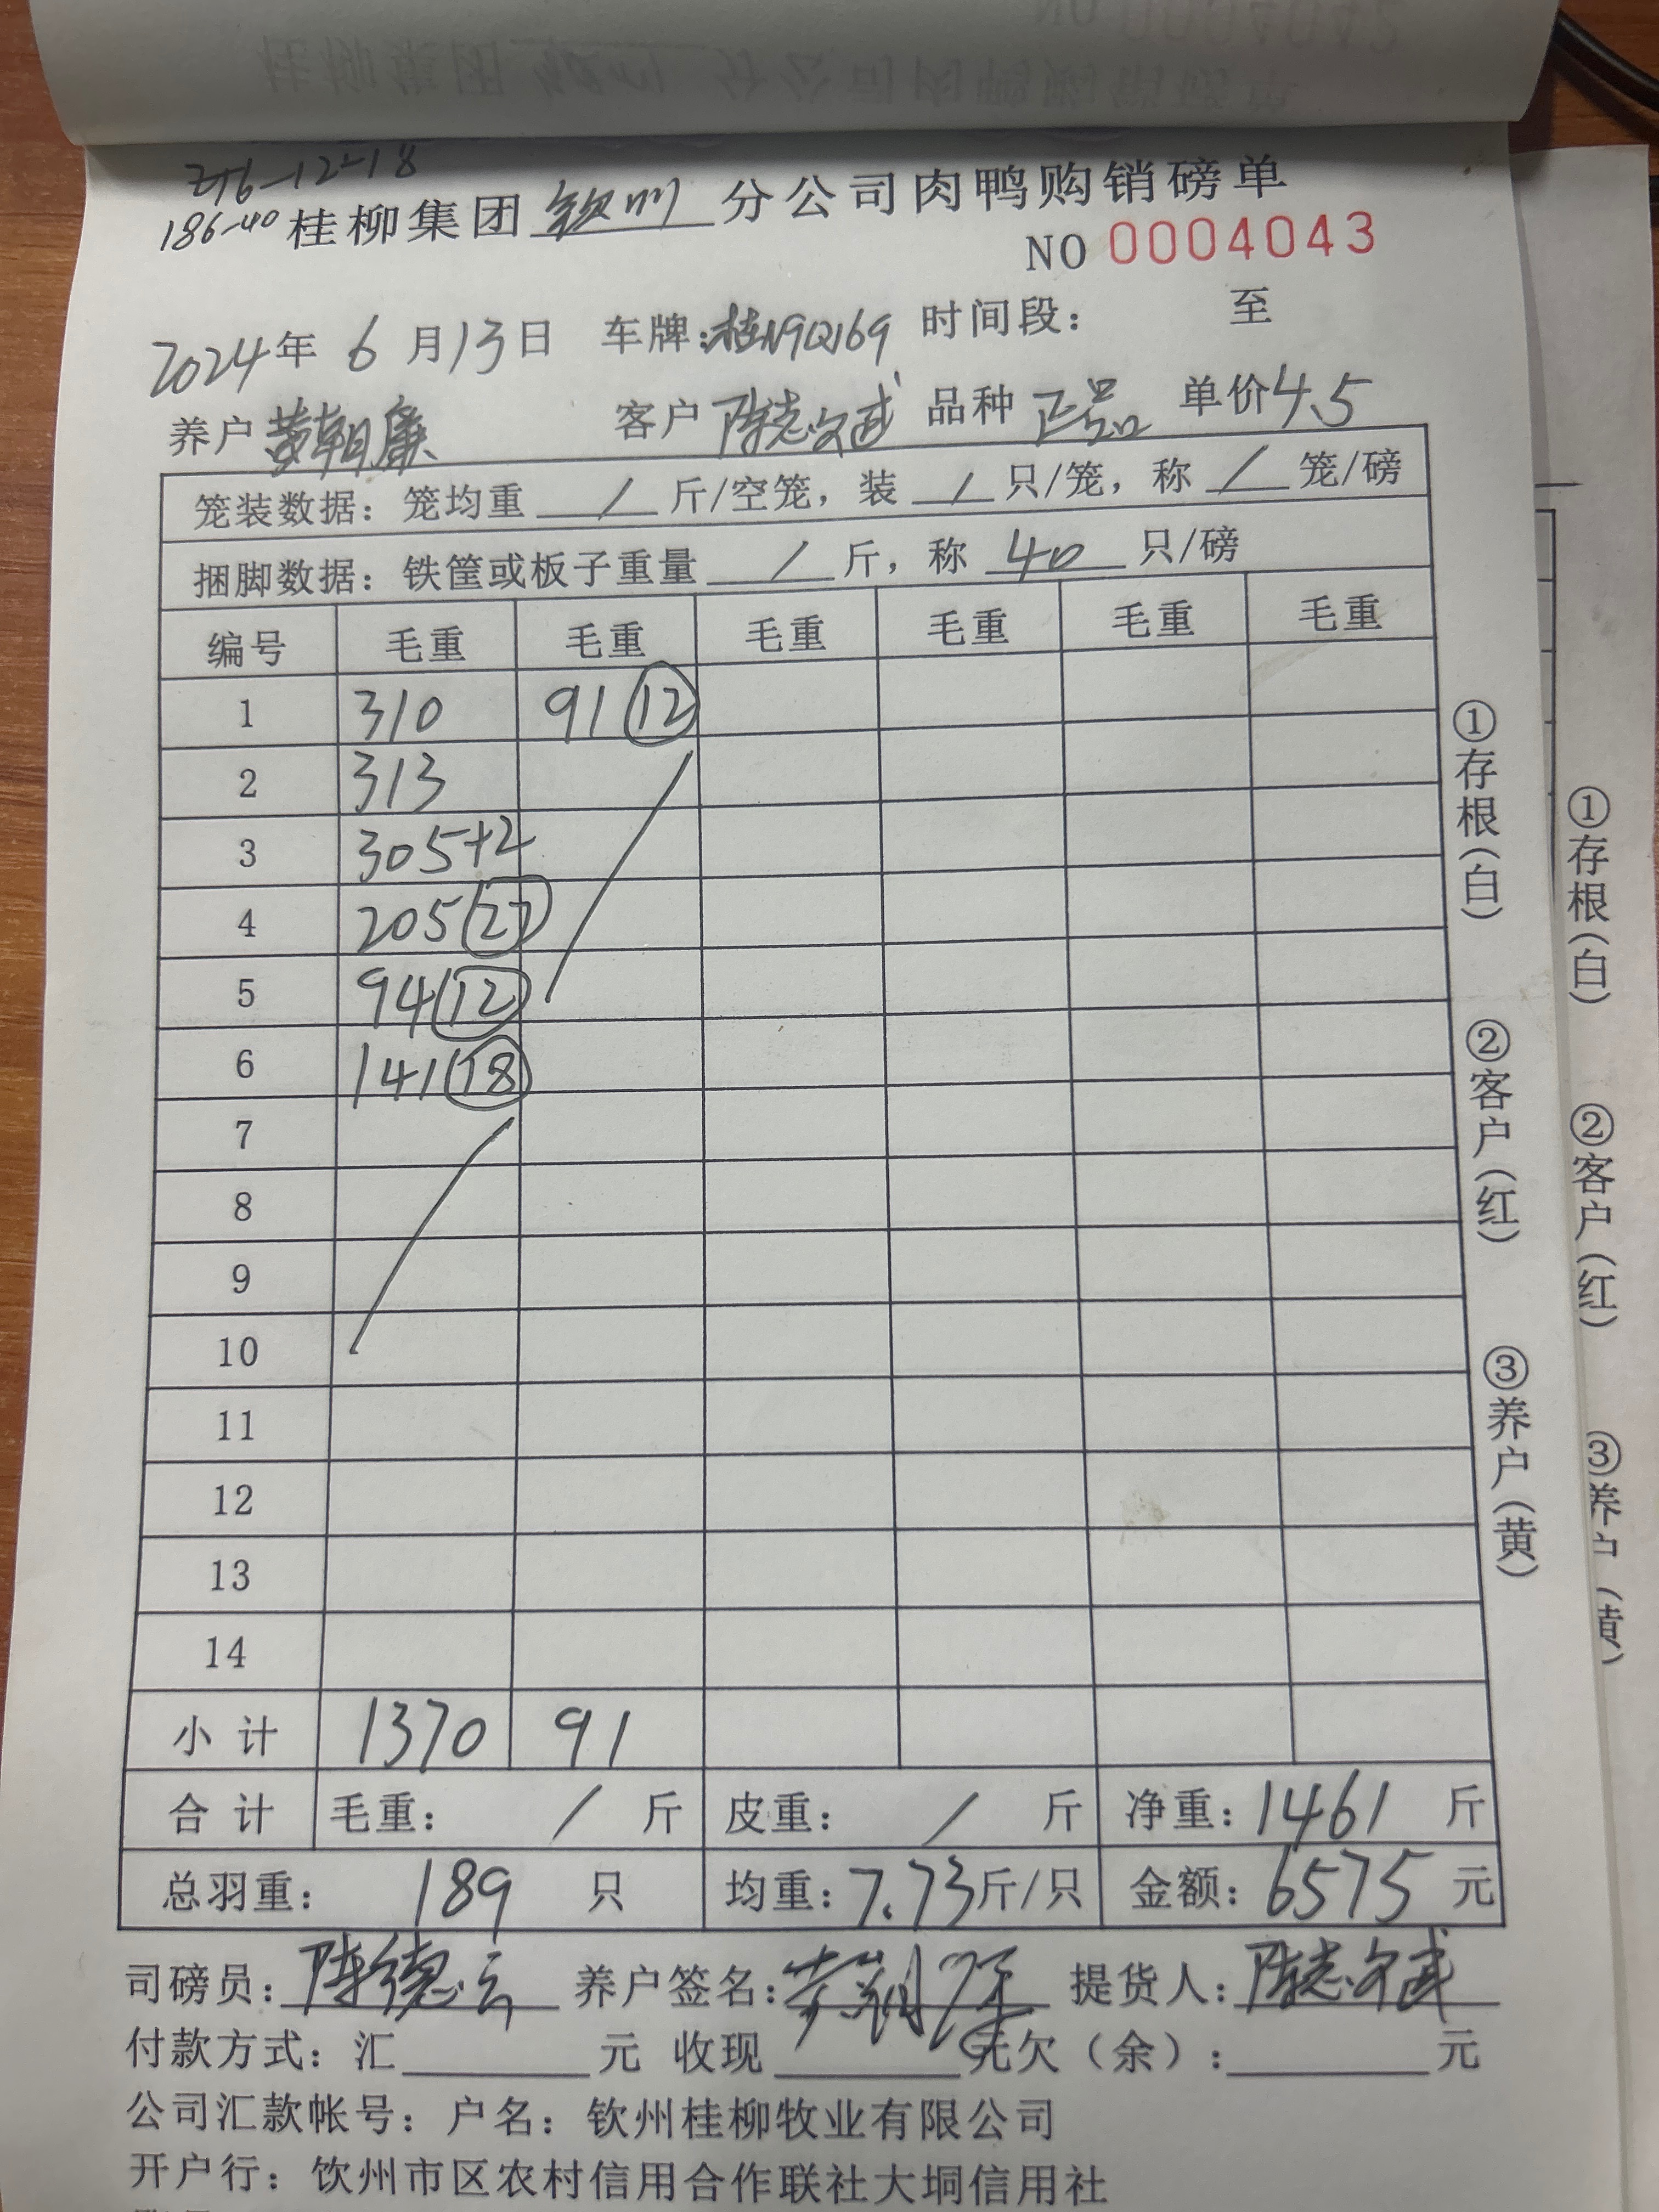 186-40 桂柳集团 钦州 分公司肉鸭购销磅单
NO 0004043
2024年 6月13日 车牌:桂N9Q169 时间段: 至
养户 黄朝廉 客户 陈志斌 品种 正品 单价4.5
笼装数据: 笼均重 / 斤/空笼, 装 / 只/笼, 称 / 笼/磅
捆脚数据: 铁筐或板子重量 / 斤, 称 40 只/磅
编号 毛重 毛重 毛重 毛重 毛重 毛重
1 310 91 12
2 313
3 305+2
4 205 27
5 94 12
6 141 18
7
8
9
10
11
12
13
14
小计 1370 91
合计 毛重: / 斤 皮重: / 斤 净重: 1461 斤
总羽重: 189 只 均重: 7.73斤/只 金额: 6575 元
①存根(白) ②客户(红) ③养户(黄)
①存根(白) ②客户(红) ③养户(黄)
司磅员: 陈德云 养户签名: 提货人: 陈志斌
付款方式: 汇 元 收现 元欠(余): 元
公司汇款帐号: 户名: 钦州桂柳牧业有限公司
开户行: 钦州市区农村信用合作联社大垌信用社